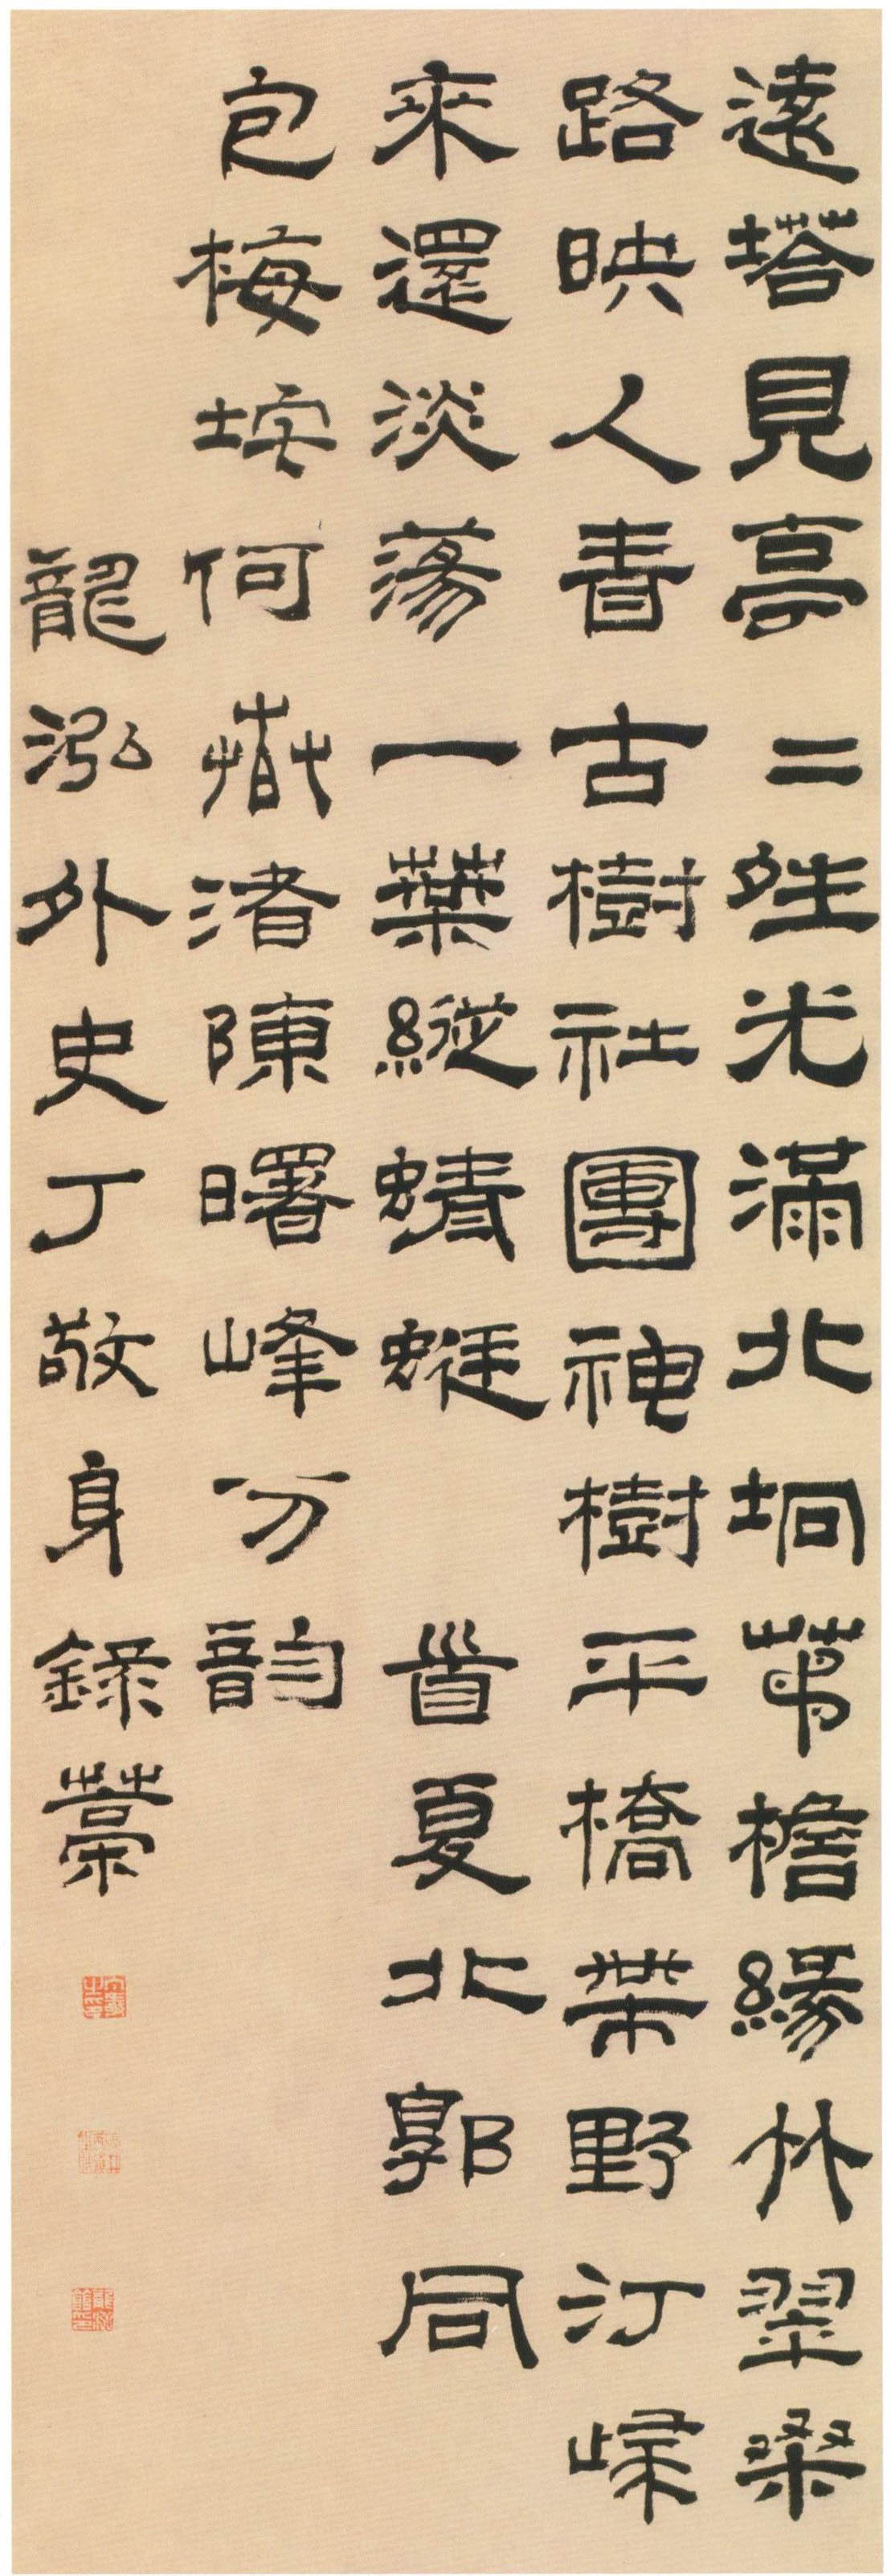 遠塔見亭二夝光滿北坰茆檐緣竹翠桑
路映人青古樹社團神樹平橋帶野汀歸
來還淡蕩一葉縱蜻蜓 首夏北郭同
包梅垞何春渚陳曙峰分韵
龍泓外史丁敬身錄藁